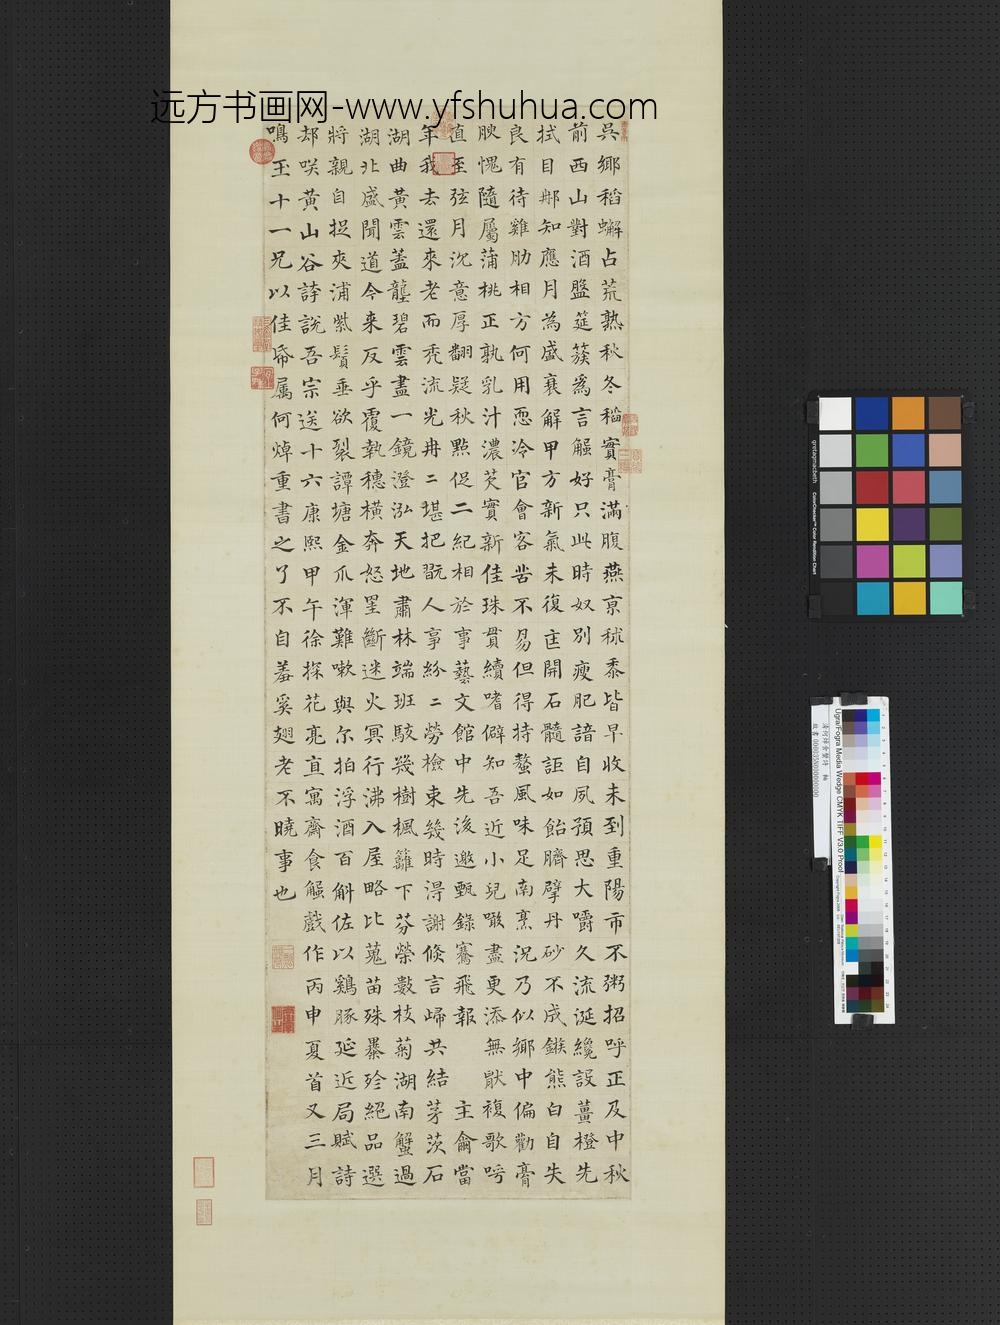 远方书画网-www.yfshuhua.com
吳鄉稻蠏占荒熟秋冬稻實膏滿腹燕京秫黍皆早收未到重陽市不粥招呼正及中秋
前西山對酒盤筵蔟爲言蠏好只此時奴別瘦肥諳自夙預思大嚼久流涎纔設薑橙先
拭目那知應月為盛衰解甲方新氣未復匡開石髓詎如飴臍擘丹砂不成鏃熊白自失
良有待雞肋相方何用恧冷官會客苦不易但得持螯風味足南烹況乃似鄉中偏勸膏
腴愧隨屬蒲桃正孰乳汁濃芡實新佳珠貫續嗜僻知吾近小兒噉盡更添無猒複歌呼
直至弦月沉意厚翻疑秋點促二紀相於事藝文館中先後邀甄錄騫飛報主龠當
年我去還來老而禿流光冉二堪把翫人事紛二勞檢束幾時淂謝倏言歸共結茅茨石
湖曲黃雲蓋壟碧雲盡一鏡澄泓天地肅林端班駮幾樹楓籬下芬榮數枝菊湖南蟹過
湖北盛聞道今来反乎覆執穗橫奔怒罣斷迷火冥行沸入屋略比蒐苗殊暴殄絕品選
將親自捉夾浦紫鬚垂欲裂譚塘金爪渾難嗽與尔拍浮酒百斛佐以鷄豚延近局賦詩
却咲黃山谷詩說吾宗送十六康熙甲午徐探花亮直寓齋食蠏戲作丙申夏首又三月
鳴玉十一兄以佳帋属何焯重書之了不自羞奚翅老不曉事也